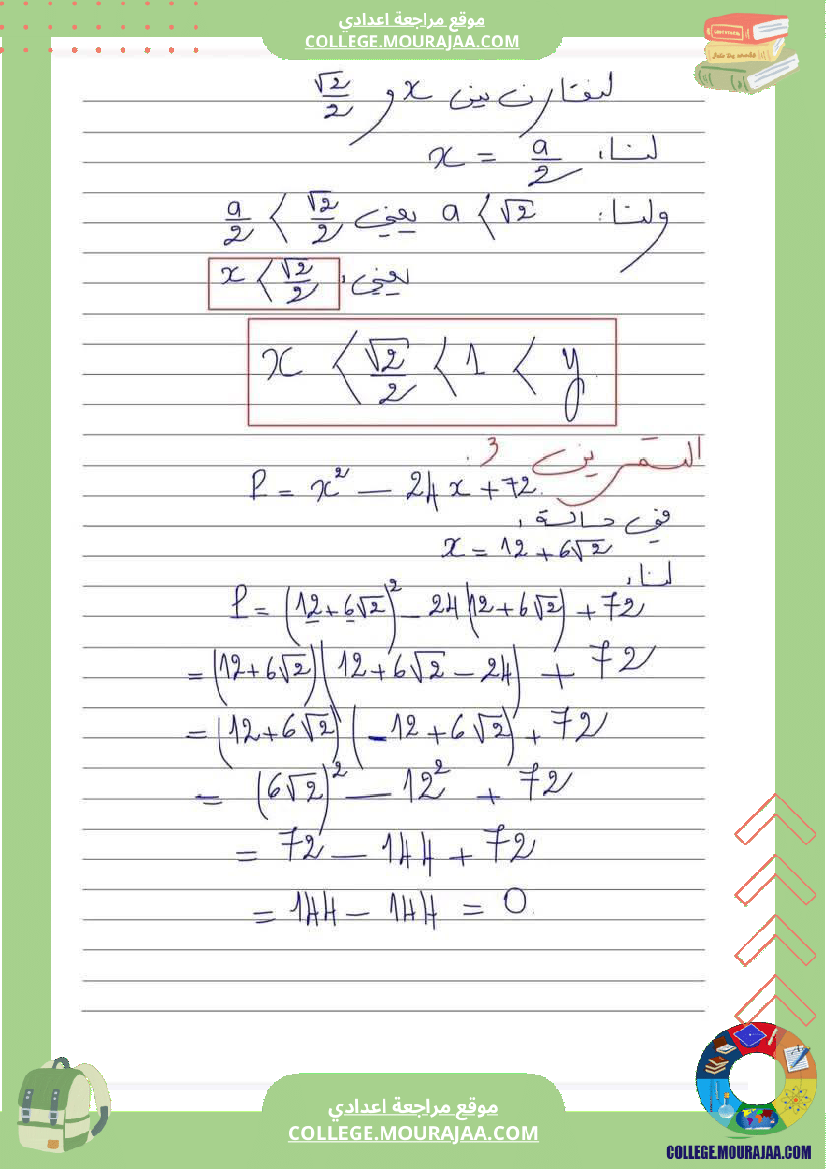 موقع مراجعة اعدادي
COLLEGE.MOURAJAA.COM
لنقارن بين x و √2/2
لنا، x = a/2
ولنا: a < √2 يعني a/2 < √2/2
يعني، x < √2/2
x < √2/2 < 1 < y
التمرين 3.
P = x² − 24x + 72.
في حالة،
x = 12 + 6√2
لنا،
P = (12 + 6√2)² − 24(12 + 6√2) + 72
= (12 + 6√2)(12 + 6√2 − 24) + 72
= (12 + 6√2)(−12 + 6√2) + 72
= (6√2)² − 12² + 72
= 72 − 144 + 72
= 144 − 144 = 0.
موقع مراجعة اعدادي
COLLEGE.MOURAJAA.COM
COLLEGE.MOURAJAA.COM